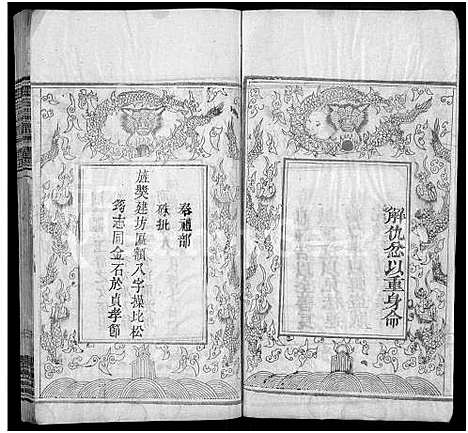 解仇忿以重身命
奉禮部
硃批
旌奬建坊匾額八字操比松
筠志同金石於貞孝節